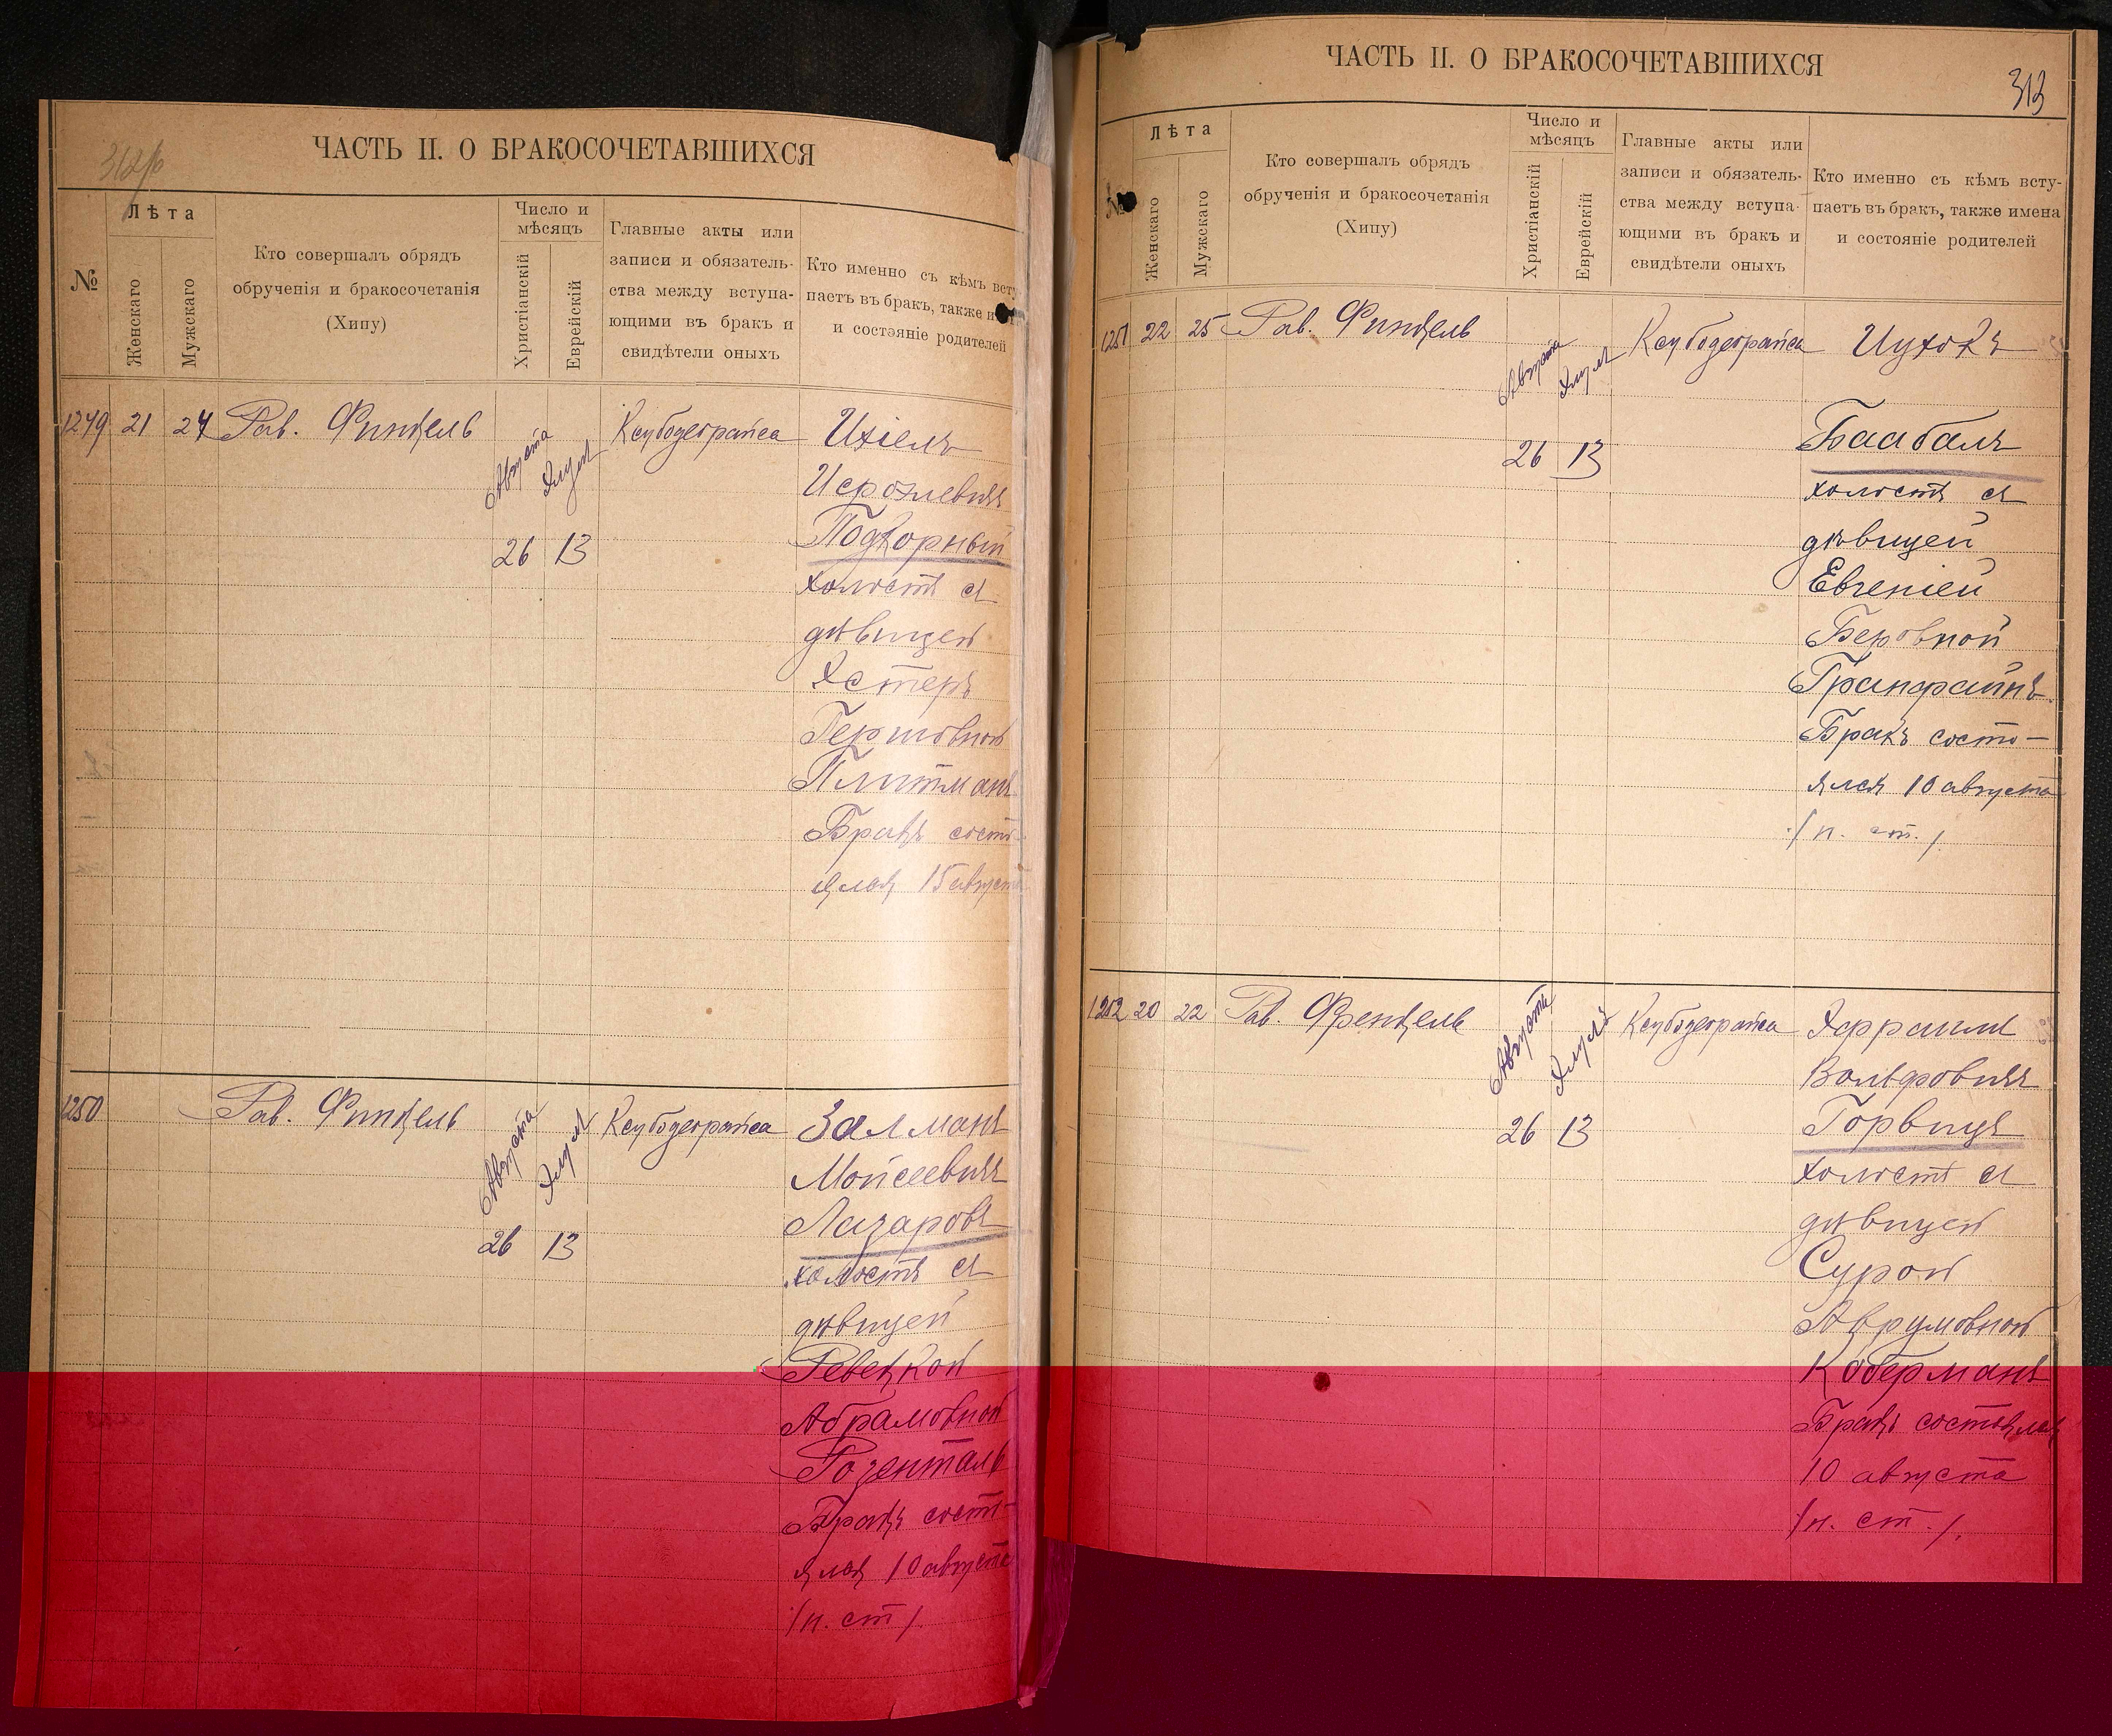 312об
ЧАСТЬ II. О БРАКОСОЧЕТАВШИХСЯ
№
Лѣта
Женскаго
Мужскаго
Кто совершалъ обрядъ
обрученія и бракосочетанія
(Хипу)
Число и
мѣсяцъ
Христіанскій
Еврейскій
Главные акты или
записи и обязатель-
ства между вступа-
ющими въ бракъ и
свидѣтели оныхъ
Кто именно съ кѣмъ всту
паетъ въ бракъ, также и
и состэяніе родителей
1249 21 24 Рав. Финкель
Августа
Элул
26 13
Ксубодеорайса
Ихіель
Исройлевичъ
Подкорный
холостъ съ
дѣвицей
Эстеръ
Гершовной
Плитманъ
Бракъ состо-
ялся 15 августа
1250 Рав. Финкель
Августа
Элул
26 13
Ксубодеорайса
Залманъ
Мойсеевичъ
Лазаровъ
холостъ съ
дѣвицей
Ревеккой
Абрамовной
Розенталь
Бракъ состо-
ялся 10 августа
/н. ст/.
ЧАСТЬ II. О БРАКОСОЧЕТАВШИХСЯ
313
№
Лѣта
Женскаго
Мужскаго
Кто совершалъ обрядъ
обрученія и бракосочетанія
(Хипу)
Число и
мѣсяцъ
Христіанскій
Еврейскій
Главные акты или
записи и обязатель-
ства между вступа-
ющими въ бракъ и
свидѣтели оныхъ
Кто именно съ кѣмъ всту-
паетъ въ бракъ, также имена
и состояніе родителей
1251 22 25 Рав. Финкель
Августа
Элул
26 13
Ксубодеорайса
Ицхокъ
Баабалъ
холостъ съ
дѣвицей
Евгеніей
Беровной
Гранфайнъ
Бракъ состо-
ялся 10 августа
/н. ст./
1252 20 22 Рав. Френкель
Августа
Элулъ
26 13
Ксубодеорайса
Эфраимъ
Вольфовичъ
Горвицъ
холостъ съ
дѣвицей
Сурой
Аврумовной
Коберманъ
Бракъ состоялся
10 августа
/н. ст./.